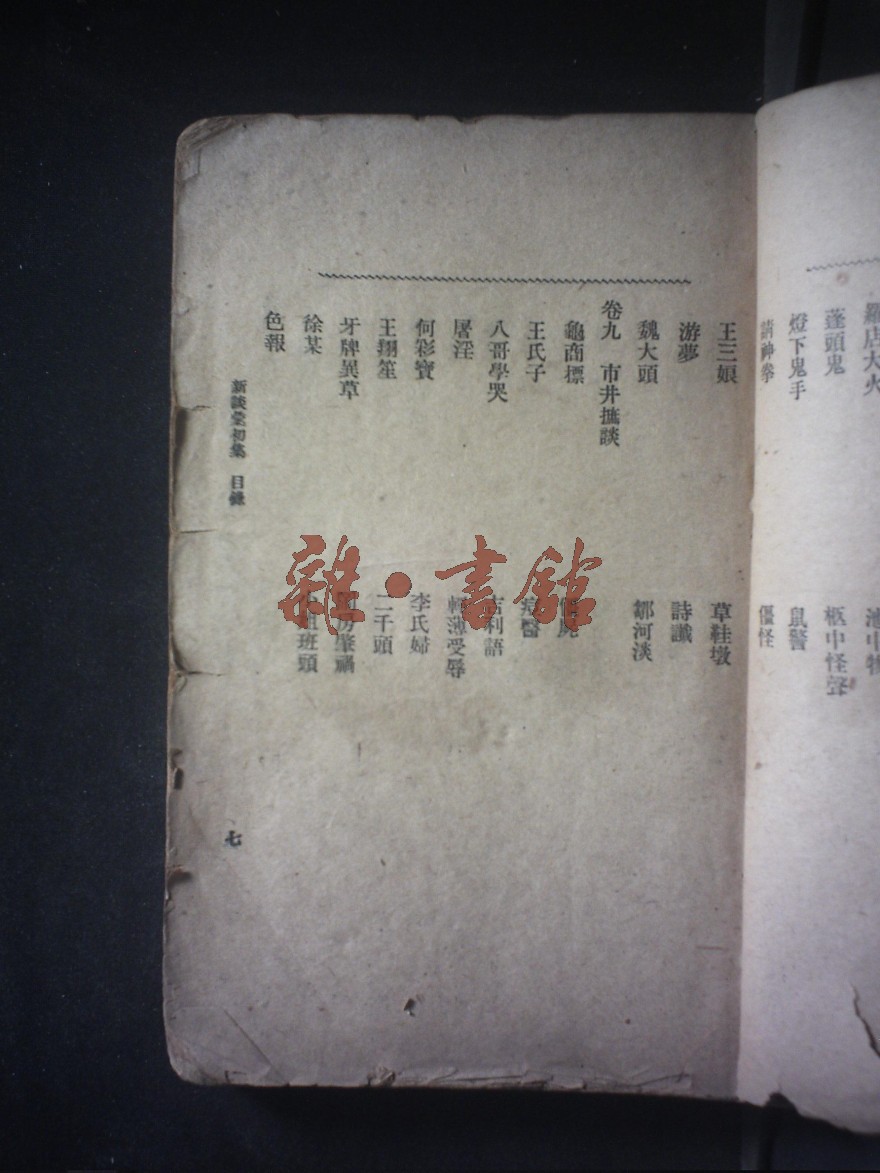 羅店大火
蓬頭鬼
柩中怪聲
燈下鬼手
鼠警
請神拳
僵怪
王三娘
草鞋墩
游夢
詩讖
魏大頭
鄒河淡
卷九 市井摭談
龜商標
王氏子
八哥學哭
吉利語
屠淫
輕薄受辱
何彩寶
李氏婦
王翔笙
二千頭
牙牌異草
徐某
色報
新談彙初集 目錄
七
雜·書館